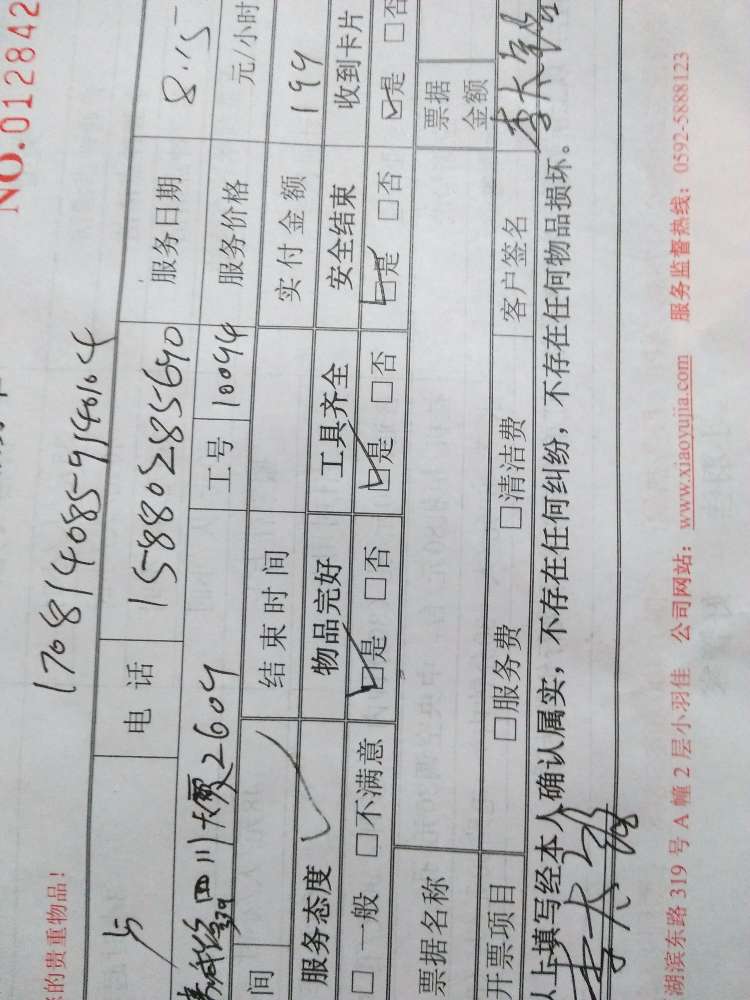 NO.012842
170814085-9140104
电话 15880285690 服务日期 8.15
四川大厦2604 工号 10094 服务价格 元/小时
间 结束时间 实付金额 199
服务态度 物品完好 工具齐全 安全结束 收到卡片
□ 一般 □不满意 □是 □否 □是 □否 □是 □否 □是 □否
票据名称 票据金额
开票项目 □服务费 □清洁费 客户签名
以上填写经本人确认属实，不存在任何纠纷，不存在任何物品损坏。
湖滨东路 319 号 A 幢 2 层小羽佳 公司网站：www.xiaoyujia.com 服务监督热线：0592-5888123
的贵重物品！